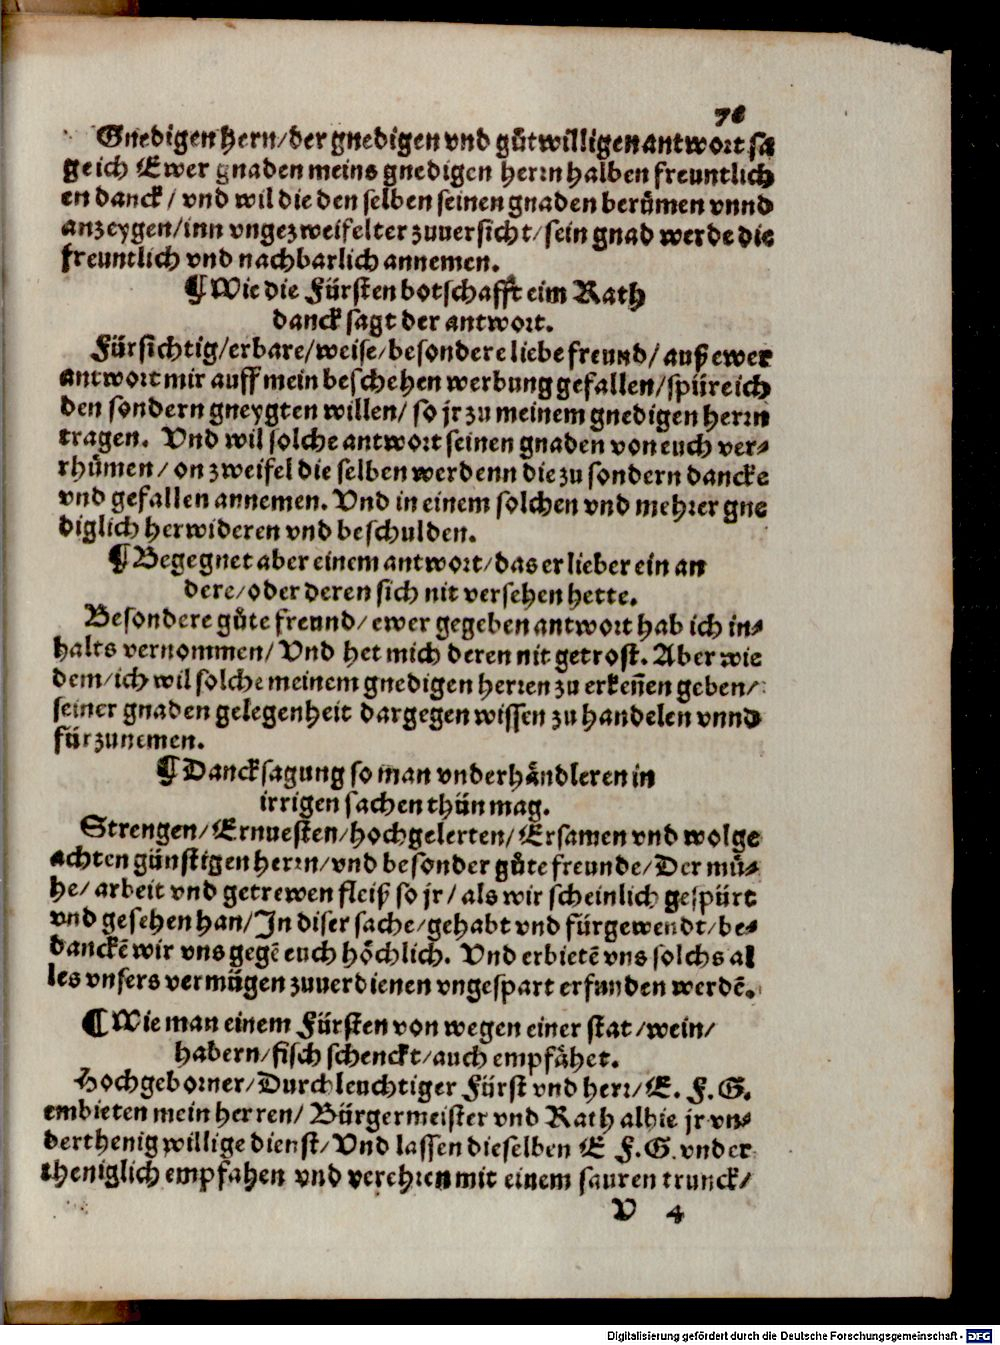 78
Gnedigen hern/der gnedigen vnd gůtwilligen antwort sa
ge ich Ewer gnaden meins gnedigen herrn halben freuntlich
en danck/ vnd wil die den selben seinen gnaden berůmen vnnd
anzeygen/inn vngezweifelter zuuersicht/sein gnad werde die
freuntlich vnd nachbarlich annemen.
¶Wie die Fürsten botschafft eim Rath
danck sagt der antwort.
Fürsichtig/erbare/weise/besondere liebe freund/ auß ewer
antwort mir auff mein beschehen werbung gefallen/spüre ich
den sondern gneygten willen/ so jr zu meinem gnedigen herrn
tragen. Vnd wil solche antwort seinen gnaden von euch ver-
rhůmen/ on zweifel die selben werdenn die zu sondern dancke
vnd gefallen annemen. Vnd in einem solchen vnd mehrer gne
diglich herwideren vnd beschulden.
¶Begegnet aber einem antwort/das er lieber ein an
dere/oder deren sich nit versehen hette.
Besondere gůte freund/ ewer gegeben antwort hab ich in-
halts vernommen/ Vnd het mich deren nit getrost. Aber wie
dem/ich wil solche meinem gnedigen herren zu erkeñen geben/
seiner gnaden gelegenheit dargegen wissen zu handelen vnnd
fürzunemen.
¶Dancksagung so man vnderhåndleren in
irrigen sachen thün mag.
Strengen/Ernuesten/hochgelerten/Ersamen vnd wolge
achten günstigen herrn/vnd besonder gůte freunde/Der mü-
he/ arbeit vnd getrewen fleiß so jr/ als wir scheinlich gespürt
vnd gesehen han/In diser sache/gehabt vnd fürgewendt/be-
danckē wir vns gegē euch hôchlich. Vnd erbietē vns solchs al
les vnsers vermügen zuuerdienen vngespart erfunden werdē.
¶Wie man einem Fürsten von wegen einer stat/wein/
habern/fisch schenckt/auch empfåhet.
Hochgeborner/Durchleuchtiger Fürst vnd herr/E. F. G.
embieten mein herren/ Bürgermeister vnd Rath alhie jr vn-
derthenig willige dienst/Vnd lassen dieselben E F. G. vnder
theniglich empfahen vnd verehren mit einem sauren trunck/
V 4
Digitalisierung gefördert durch die Deutsche Forschungsgemeinschaft - DFG